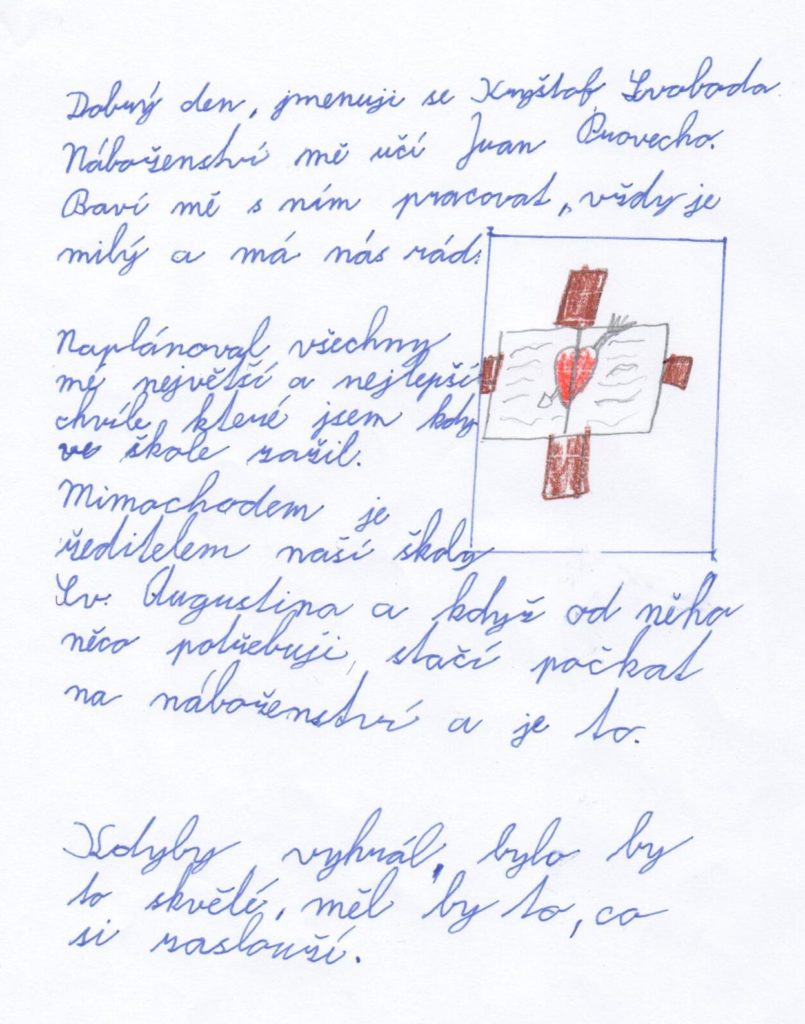 Dobrý den, jmenuji se Kryštof Svoboda
Náboženství mě učí Juan Provecho.
Baví mě s ním pracovat, vždy je
milý a má nás rád.
Naplánoval všechny
mé největší a nejlepší
chvíle které jsem kdy
ve škole zažil.
Mimochodem je
ředitelem naší školy
Sv. Augustina a když od něho
něco potřebuji, stačí počkat
na náboženství a je to.
Kdyby vyhrál, bylo by
to skvělé, měl by to, co
si zaslouží.